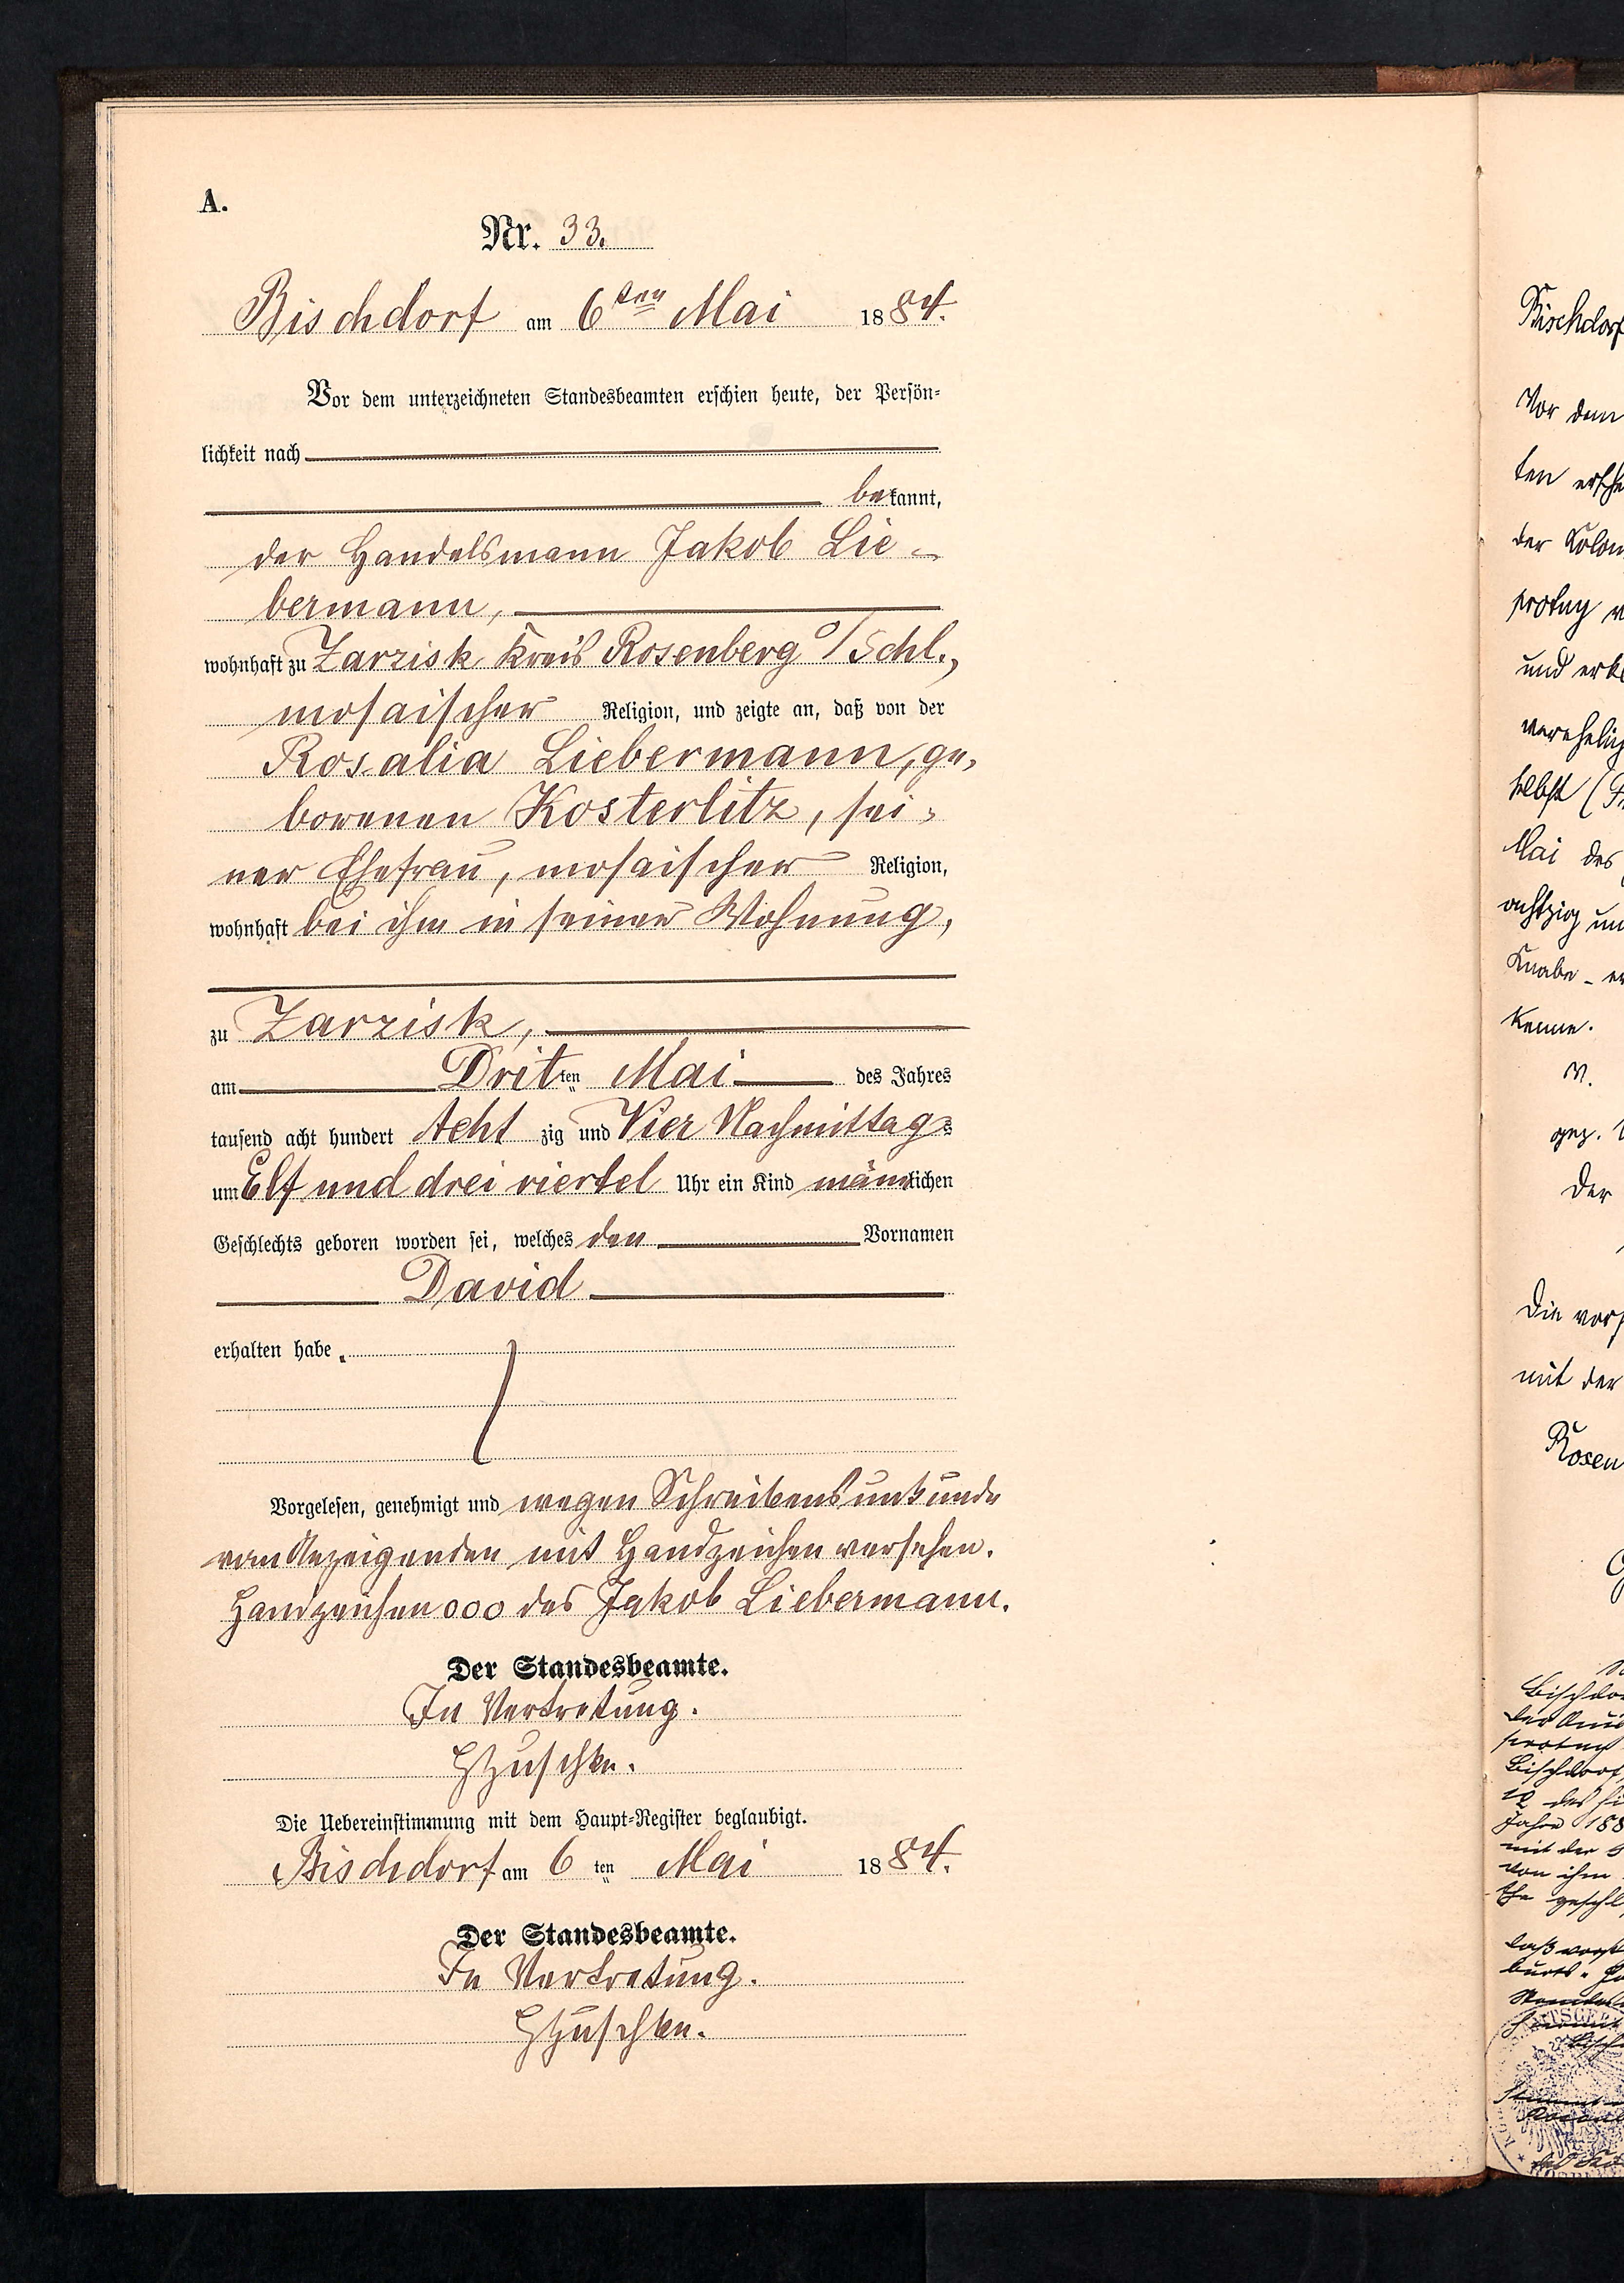 A.
Nr. 33.
Bischdorf am 6ten Mai 1884.
Vor dem unterzeichneten Standesbeamten erschien heute, der Persön-
lichkeit nach
bekannt,
der Handelsmann Jakob Lie-
bermann,
wohnhaft zu Zarzisk Kreis Rosenberg O/Schl.,
mosaischer Religion, und zeigte an, daß von der
Rosalia Liebermann, ge-
borenen Kosterlitz, sei-
ner Ehefrau, mosaischer Religion,
wohnhaft bei ihm in seiner Wohnung,
zu Zarzisk,
am Dritten Mai des Jahres
tausend acht hundert Acht zig und Vier Nachmittags
um Elf und drei viertel Uhr ein Kind männlichen
Geschlechts geboren worden sei, welches den Vornamen
David
erhalten habe.
Vorgelesen, genehmigt und wegen Schreibensunkunde
vom Anzeigenden mit Handzeichen versehen.
Handzeichen ooo des Jakob Liebermann.
Der Standesbeamte.
In Vertretung.
Die Uebereinstimmung mit dem Haupt-Register beglaubigt.
Bischdorf am 6ten Mai 1884.
Der Standesbeamte.
In Vertretung.
Bischdorf
Vor dem
ten
der
und
Mai des
Der
Die
mit der